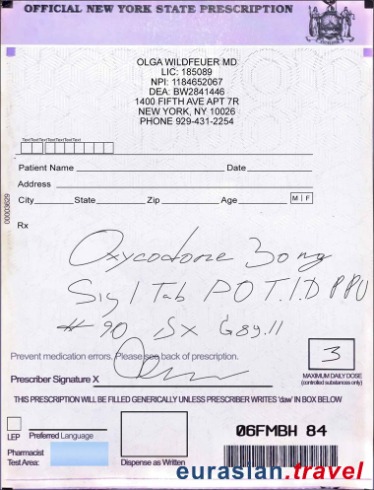 OFFICIAL NEW YORK STATE PRESCRIPTION
OLGA WILDFEUER MD
LIC: 185089
NPI: 1184652067
DEA: BW2841446
1400 FIFTH AVE APT 7R
NEW YORK, NY 10026
PHONE 929-431-2254
Patient Name Date
Address
City State Zip Age M F
Rx
Oxycodone 30 mg
Sig 1 Tab PO T.I.D
# 90 G89.11
Prevent medication errors. Please see back of prescription.
3
Prescriber Signature X
MAXIMUM DAILY DOSE
(controlled substances only)
THIS PRESCRIPTION WILL BE FILLED GENERICALLY UNLESS PRESCRIBER WRITES 'daw' IN BOX BELOW
LEP Preferred Language
06FMBH 84
Pharmacist
Test Area:
Dispense as Written
eurasian.travel